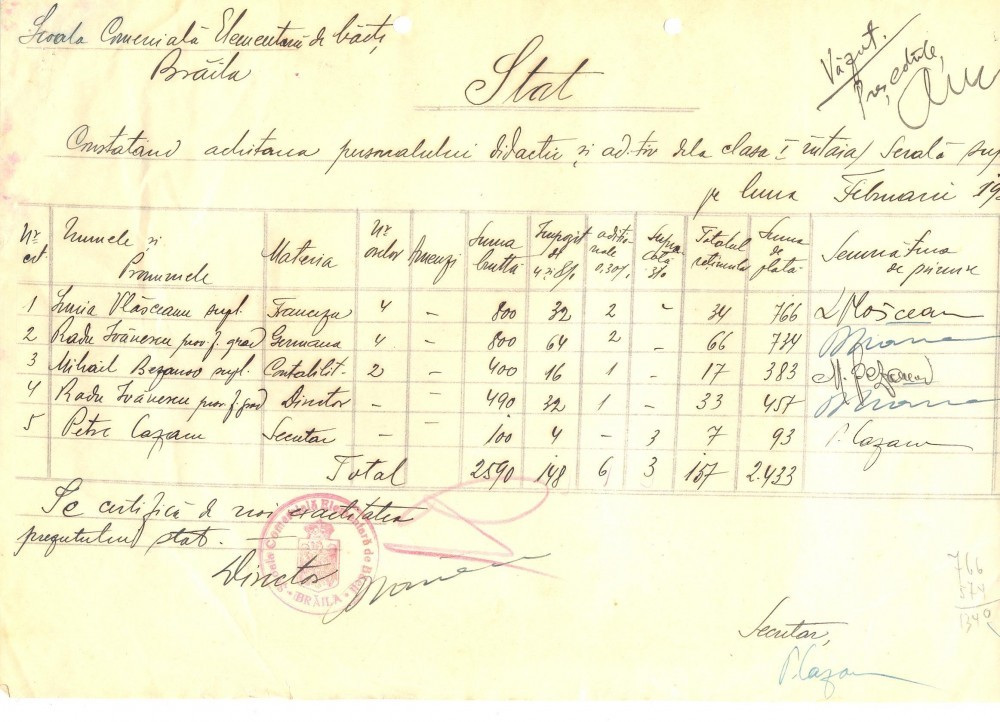 Școala Comercială Elementară de băeți
Brăila
Văzut.
Președinte,
Stat
Constatând achitarea personalului didactic și ad-tiv dela clasa I întâia/ Serală
pe luna Februarie 19
Nr. crt. Numele și Pronumele Materia Nr. orelor Amenzi Suma brută Impozit de 4 și 8% aditionale 0,30% Supra cotă 3% Totalul reținerilor Suma de plată Semnătura de primire
1 Vlășceanu supl. Franceza 4 - 800 32 2 - 34 766 L Vlășceanu
2 Radu Ivănescu prov. f. grad Germana 4 - 800 64 2 - 66 734
3 Mihail Bezanov supl. Contabilit- 2 - 400 16 1 - 17 383
4 Radu Ivănescu prov. f. grad Director - - 490 32 1 - 33 457
5 Petre Cazacu Secretar - - 100 4 - 3 7 93 P. Cazacu
Total 2590 148 6 3 157 2.433
Se certifică de noi exactitatea
prezentului stat.
Director
BRĂILA
766
574
1340
Secretar,
P. Cazacu